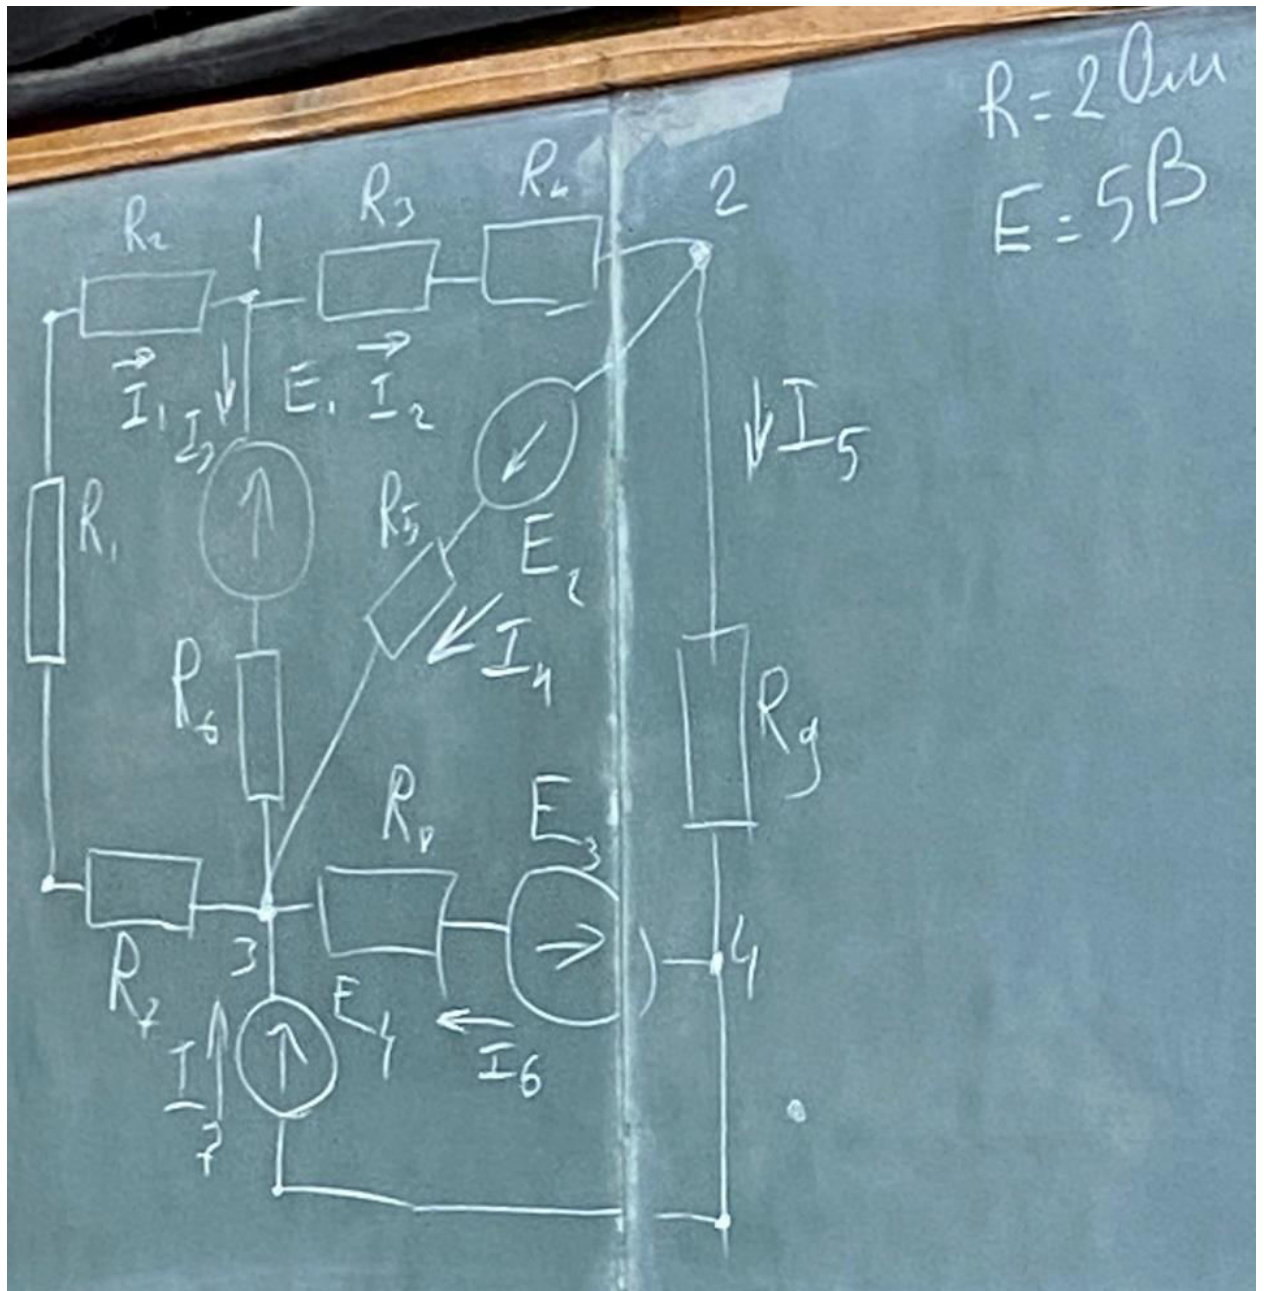 R = 2 Ом
E = 5 В
R₂ 1 R₃ R₄ 2
I₁ I₃ E₁ I₂ I₅
R₁ R₅ E₂
I₄
R₆ R₉
R₈ E₃
R₇ 3 E₄ 4
I₇ I₆